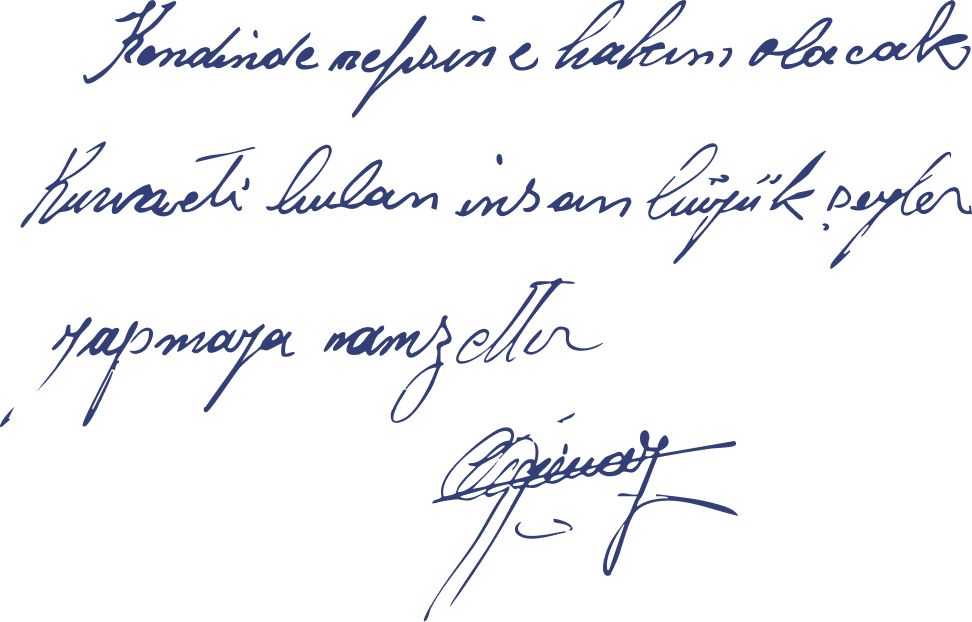 Kendinde nefsine hakim olacak
Kuvveti bulan insan büyük şeyler
yapmaya namzettir